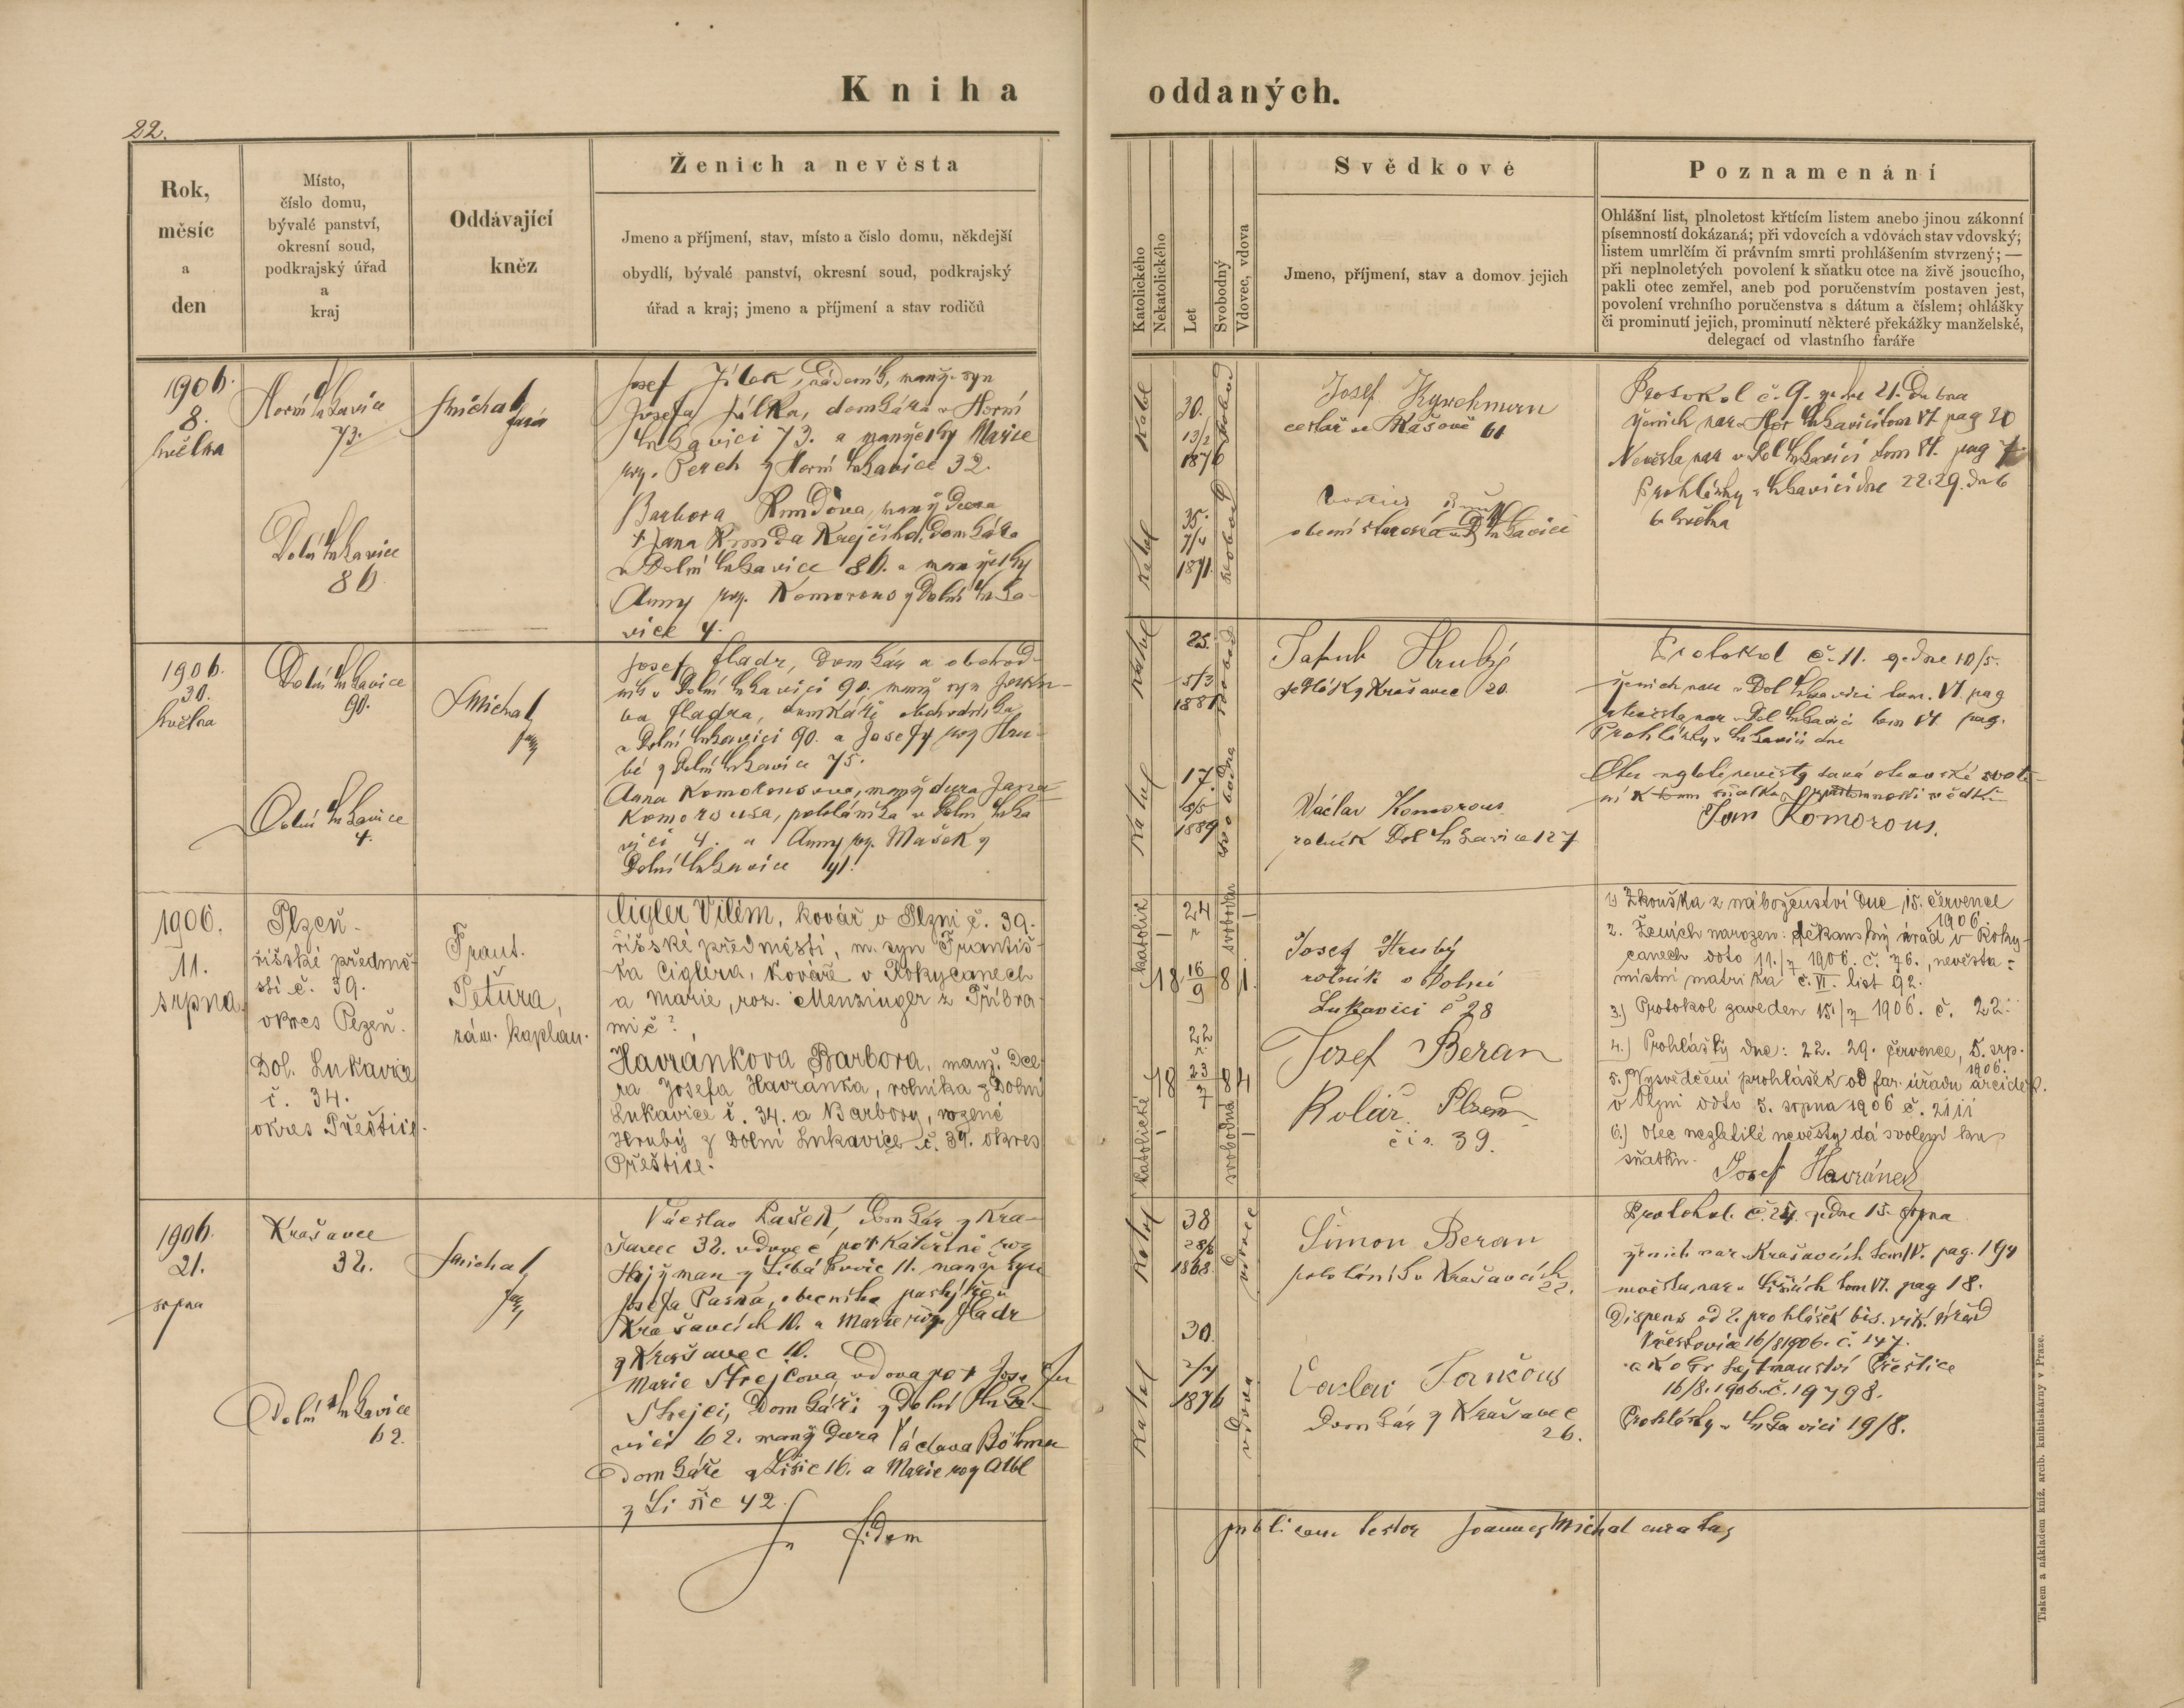 Kniha oddaných.
22.
Rok,
měsíc
a
den
Místo,
číslo domu,
bývalé panství,
okresní soud,
podkrajský úřad
a
kraj
Oddávající
kněz
Ženich a nevěsta
Jmeno a příjmení, stav, místo a číslo domu, někdejší
obydlí, bývalé panství, okresní soud, podkrajský
úřad a kraj; jmeno a příjmení a stav rodičů
Katolického
Nekatolického
Let
Svobodný
Vdovec, vdova
Svědkové
Jmeno, příjmení, stav a domov jejich
Poznamenání
Ohlášní list, plnoletost křtícím listem anebo jinou zákonní
písemností dokázaná; při vdovcích a vdovách stav vdovský;
listem umrlčím či právním smrti prohlášením stvrzený; —
při neplnoletých povolení k sňatku otce na živě jsoucího,
pakli otec zemřel, aneb pod poručenstvím postaven jest,
povolení vrchního poručenstva s dátum a číslem; ohlášky
či prominutí jejich, prominutí některé překážky manželské,
delegací od vlastního faráře
1906.
8.
května
Horní Lukavice
73.
Dolní Lukavice
86
JMichal
farář
Josef Jílek, manž. syn
Josefa Jílka, domkáře v Horní
Lukavici 73. a manželky Marie
roz. Perch z Horní Lukavice 32.
Barbora manž dcera
† Jana domkáře
v Dolní Lukavice 86. a manželky
Anny roz. Komorous z Dolní Luka-
vice 4.
Katol
30.
13/2
1876
Katol
35.
7/4
1871.
Josef
cestář v 61
obecní starosta v D Lukavici
Protokol č. 9. ze dne 21. Dubna
ženich nar. v Hor Lukavici tom VI pag 20
Nevěsta nar v Dol Lukavici tom VI. pag 7
Prohlášky v Lukavici dne 22. 29. Dub
6. května
1906.
30.
května
Dolní Lukavice
90.
Dolní Lukavice
4.
JMichal
Josef Fladr, domkář a obchod-
ník v Dolní Lukavici 90. manž syn
Fladra, domkáře obchodníka
v Dolní Lukavici 90. a Josefy roz Hru-
bé z Dolní Lukavice 75.
Anna Komorousova, manž dcera Jana
Komorousa, pololáníka v Dolní Luka
vici 4. a Anny roz. Mašek z
Dolní Lukavice 41.
Katol
25.
5/3
1881
Katol
17.
1889
svobodna
Jakub Hrubý
sedlák z Krašavec 20.
Václav Komorous
rolník Dol Lukavice 127
Protokol č. 11. ze dne 10/5.
ženich nar v Dol Lukavici tom. VI. pag
Nevěsta nar v Dol Lukavici tom VI. pag.
Prohlášky v Lukavici dne
Otec nezletilé nevěsty dává otcovské svole-
ní k tomu sňatku v přítomnosti svědků
Jan Komorous.
1906.
11.
srpna
Plzeň-
říšské předmě-
stí č. 39.
okres Plzeň.
Dol. Lukavice
č. 34.
okres Přeštice.
Frant.
Peťura,
zám. kaplan.
Cigler Vilém, kovář v Plzni č. 39.
říšské předměstí, m. syn Františ-
ka Ciglera, kováře v Rokycanech
a Marie, roz. Menzinger z Příbra
mi č ?
Havránkova Barbora, manž. dce
ra Josefa Havránka, rolníka z Dolní
Lukavice č. 34. a Barbory, rozené
Hrubý z Dolní Lukavice č. 34. okres
Přeštice.
katolík
24
r
18 16/9 81.
svoboden
katolické
22
r.
18 23/7 84
svobodná
Josef Hrubý
rolník v Dolní
Lukavici č 28
Josef Beran
Kolář Plzeň
čís. 39.
1) Zkouška z náboženství dne 15. července
1906.
2. Ženich narozen: děkanský úřad v Roky-
canech ddto 11./7 1906. č. 76., nevěsta:
místní matrika č. VI. list 92.
3.) Protokol zaveden 15./7 1906. č. 22.
4.) Prohlášky dne: 22. 29. července, 5. srp.
1906.
5.) Vysvědčení prohlášek od far. úřadu arciděk.
v Plzni ddto 5. srpna 1906 č. 2111
6.) Otec nezletilé nevěsty dá svolení ku
sňatku. Josef Havránek
1906.
21.
srpna
Krašavce
32.
Dolní Lukavice
62.
JMichal
Václav Pašek, domkář z Kra-
šavec 32. vdovec po † Kateřině roz
Hajžman z Libákovic 11. manž. syn
Josefa Paška, obecního pastýře v
Krašavcích 10. a Marie roz. Fladr
z Krašavec 10.
Marie Strejcova vdova po † Josefu
Strejci, domkáři z Dolní Luka-
vici 62. manž dcera Václava Böhma
domkáře z Lišic 16. a Marie roz Altl
z Lišic 42.
Katol
38
28/8
1868
vdovec
Katol
30.
2/7
1876
vdova
Šimon Beran
pololáník v Krašavcích
22.
Václav
domkář z Krašavec
26.
Protokol č. 24. ze dne 15. srpna
ženich nar. v Krašavcích tom IV. pag. 194
nevěsta nar v Lišicích tom VI. pag 18.
Dispens od 2. prohlášek bis. vik. úřad
16/8 1906. č. 147.
a k o kr hejtmanství Přeštice
16/8. 1906. č. 19798.
Prohlášky v Lukavici 19/8.
In fidem publicam testor Joannes Michal curatus
Tiskem a nákladem kníž. arcib. knihtiskárny v Praze.